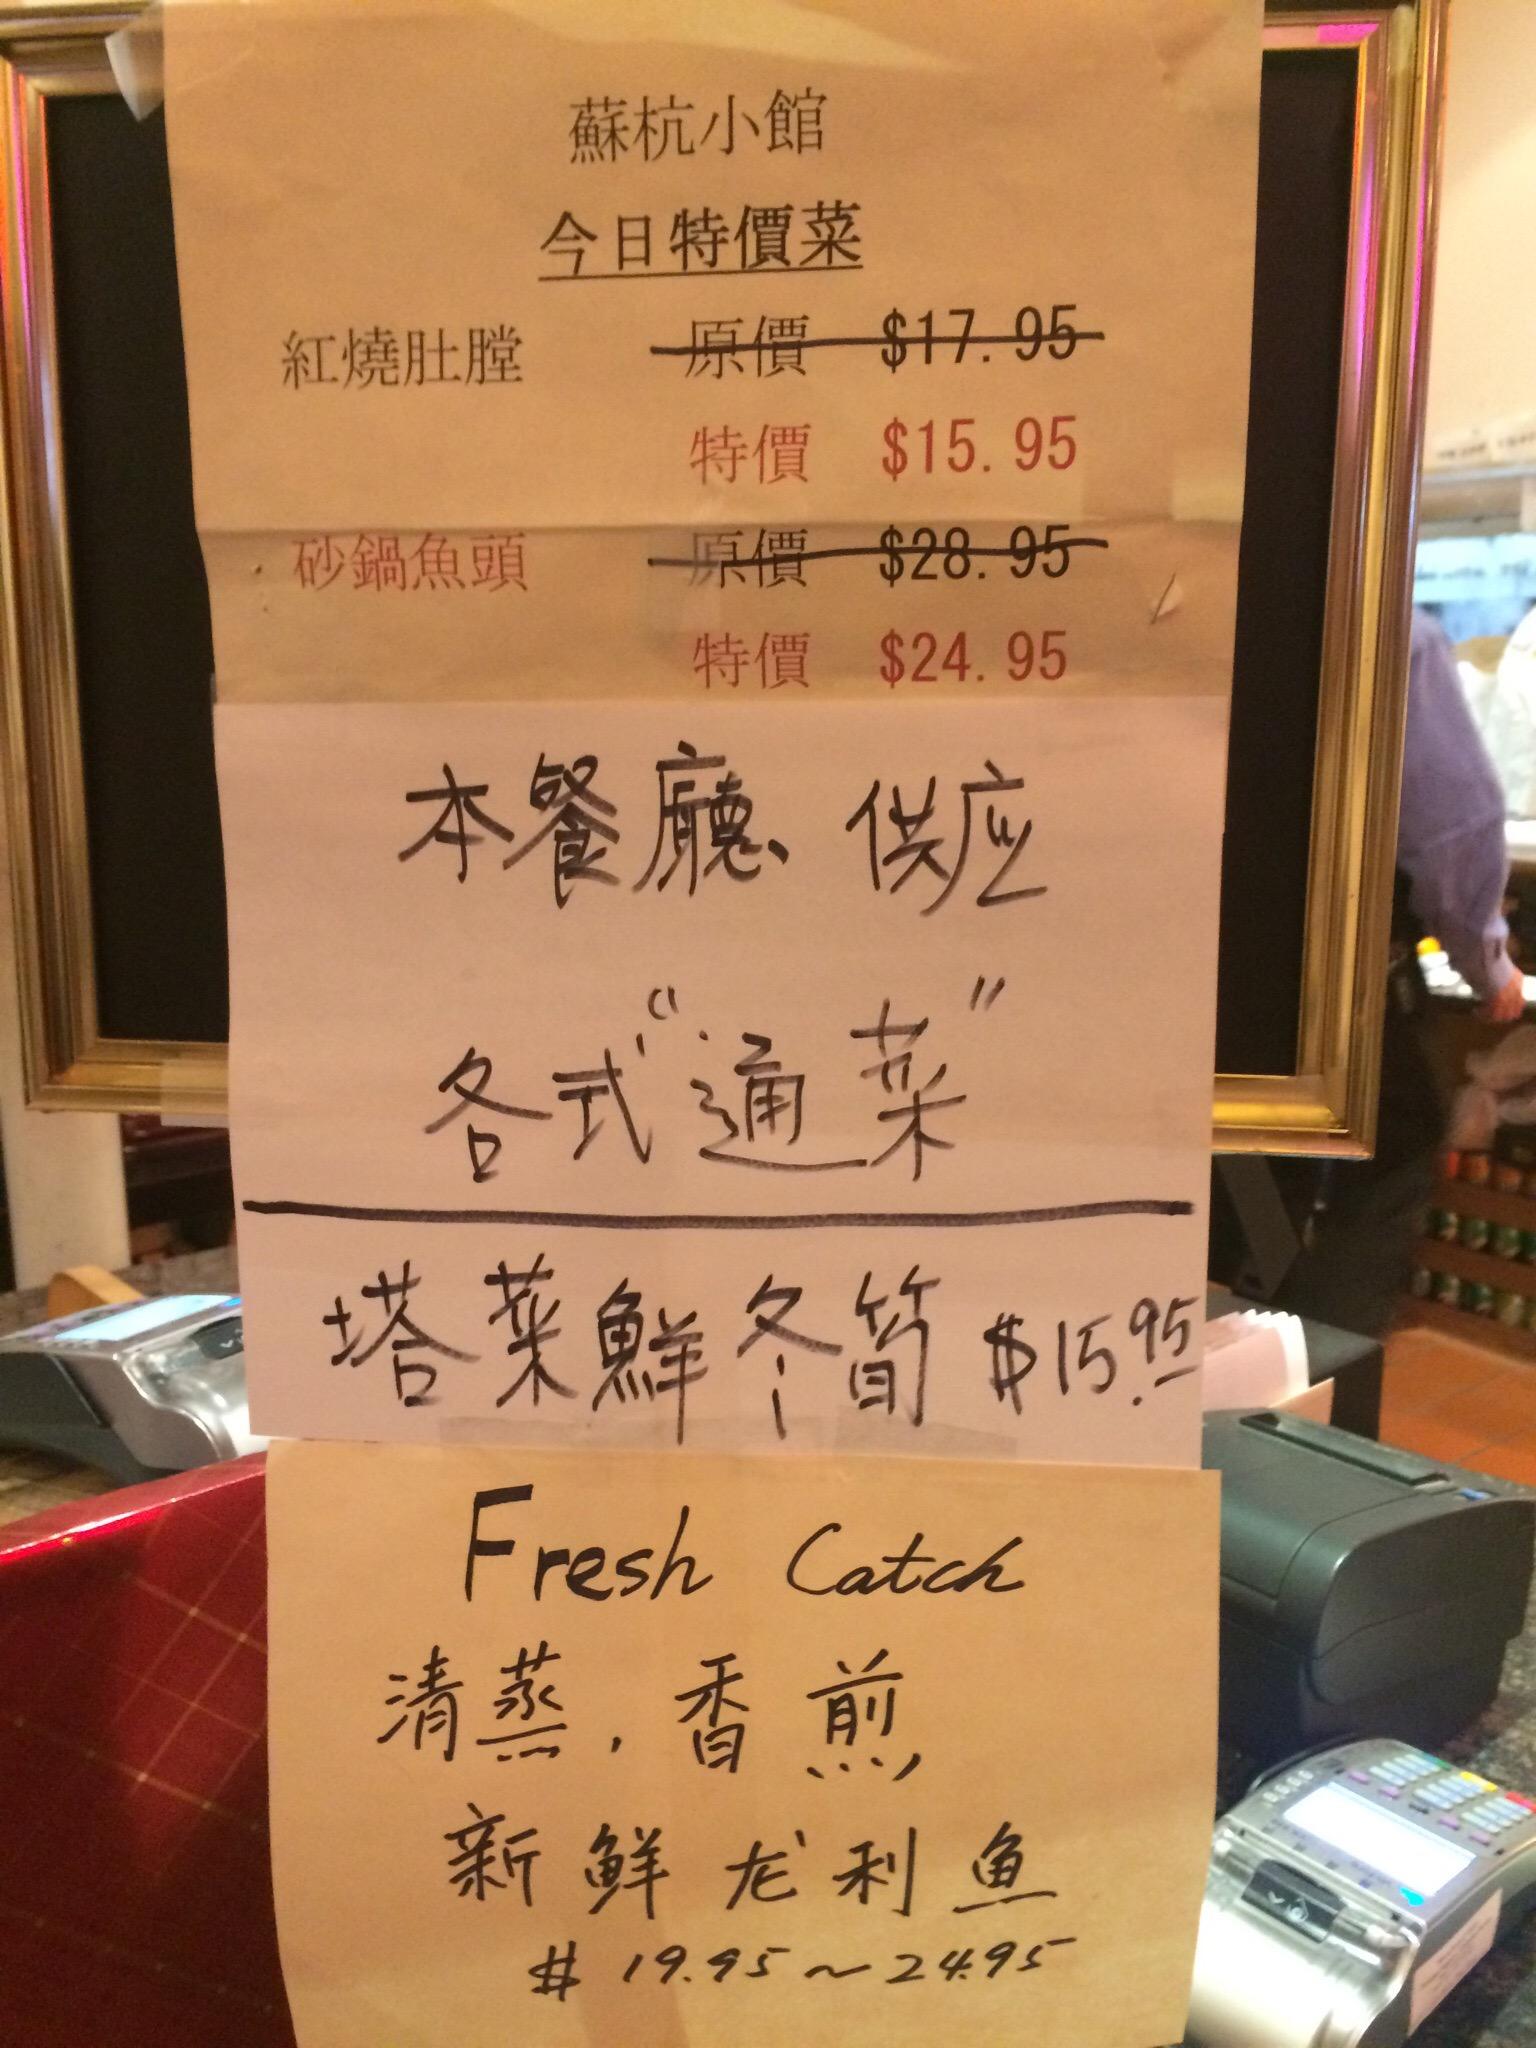 蘇杭小館
今日特價菜
紅燒肚膛 原價 $17.95
特價 $15.95
砂鍋魚頭 原價 $28.95
特價 $24.95
本餐廳、供应
各式“通菜”
塔菜鮮冬筍 $15.95
Fresh Catch
清蒸，香煎
新鮮龙利魚
$19.95～24.95